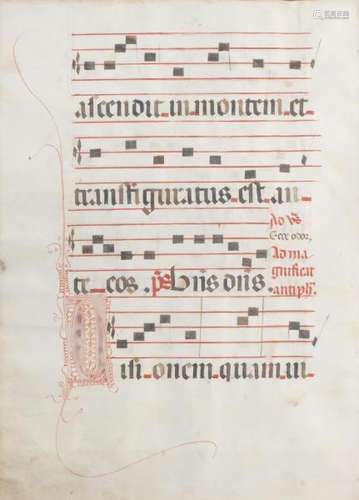 ascendit in montem et
transfiguratus est an
te eos. ps Bn̄s dn̄s.
Ad vs̄
Ecce odor,
Ad ma
gnificat
antiph̄.
Visionem quam vi